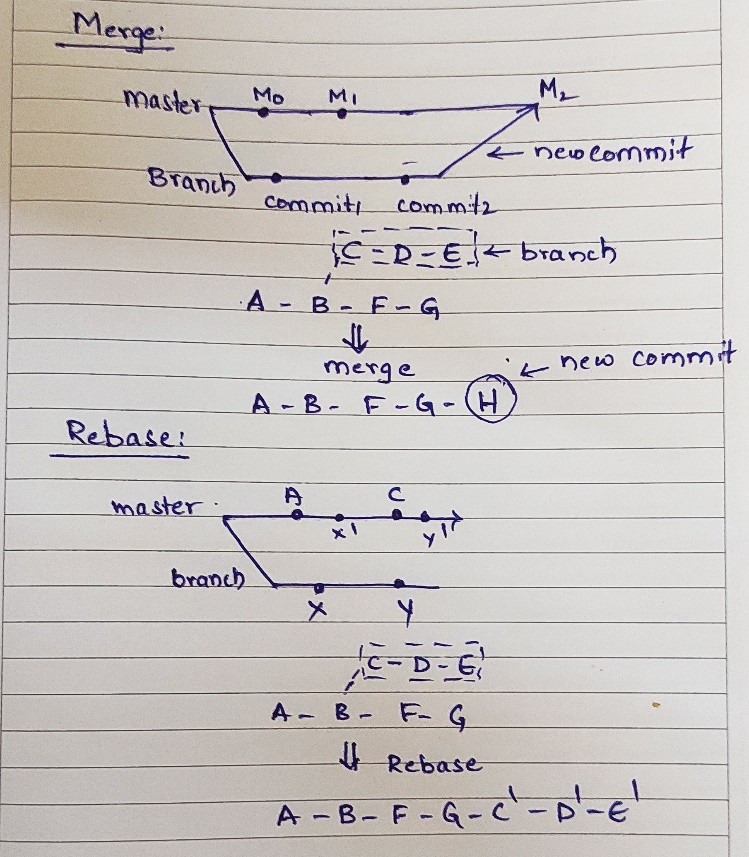 Merge:
master M0 M1 M2
← new commit
Branch commit1 commit2
C - D - E ← branch
A - B - F - G
⇓
merge ← new commit
A - B - F - G - H
Rebase:
master A x' C y'
branch
X Y
C - D - E
A - B - F - G
⇓ Rebase
A - B - F - G - C' - D' - E'